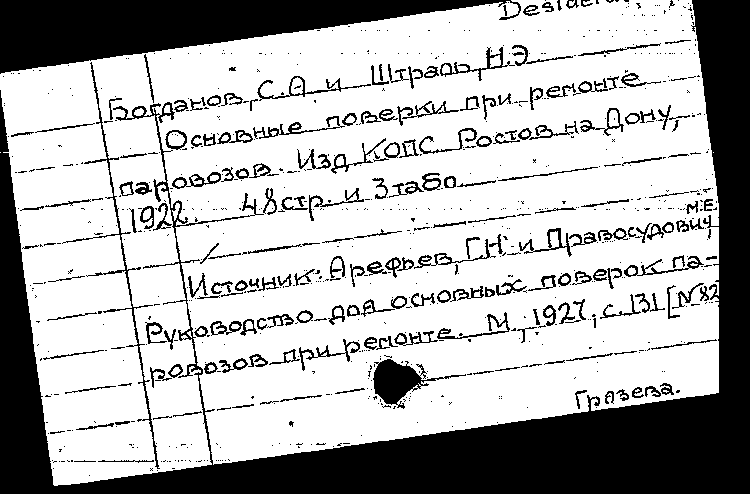 Богданов, С.А и Штраль, Н.Э
Основные поверки при ремонте
паровозов. Изд КОПС Ростов на Дону,
1922. 48 стр. и 3 табл
Источник: Арефьев, Г.Н и Правосудович, М.Е.
Руководство для основных поверок па-
ровозов при ремонте. М, 1927, с. 131 [№82
Грязева.